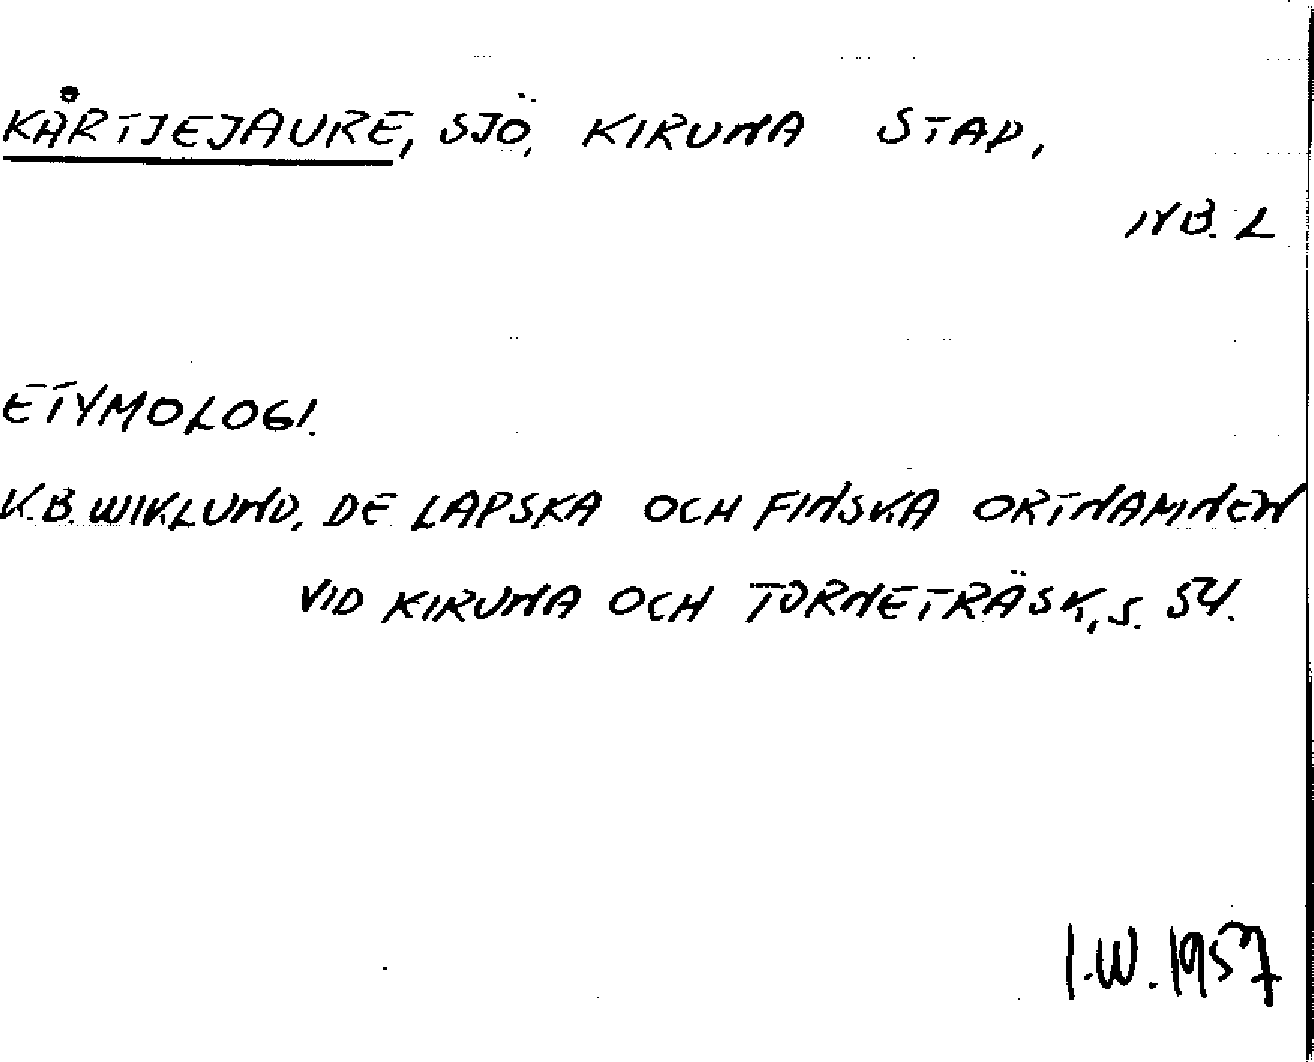 KÅRTJEJAURE, SJÖ, KIRUNA STAD,
NB. L
ETYMOLOGI.
K.B. WIKLUND, DE LAPSKA OCH FINSKA ORTNAMNEN
VID KIRUNA OCH TORNETRÄSK, S. 54.
I.W. 1957